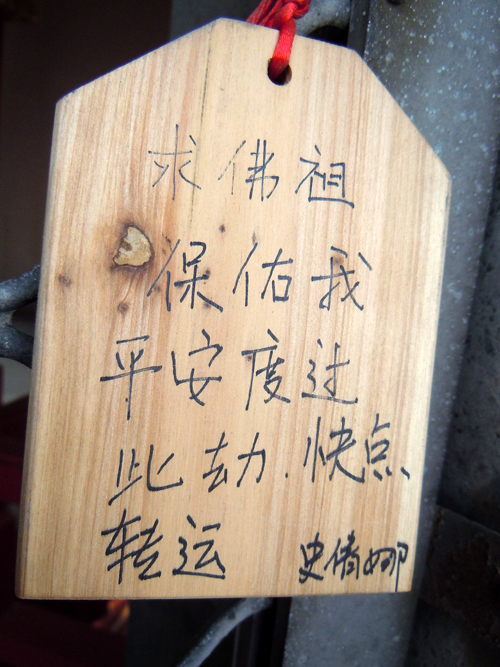 求佛祖
保佑我
平安度过
此劫.快点
转运 史倩娜